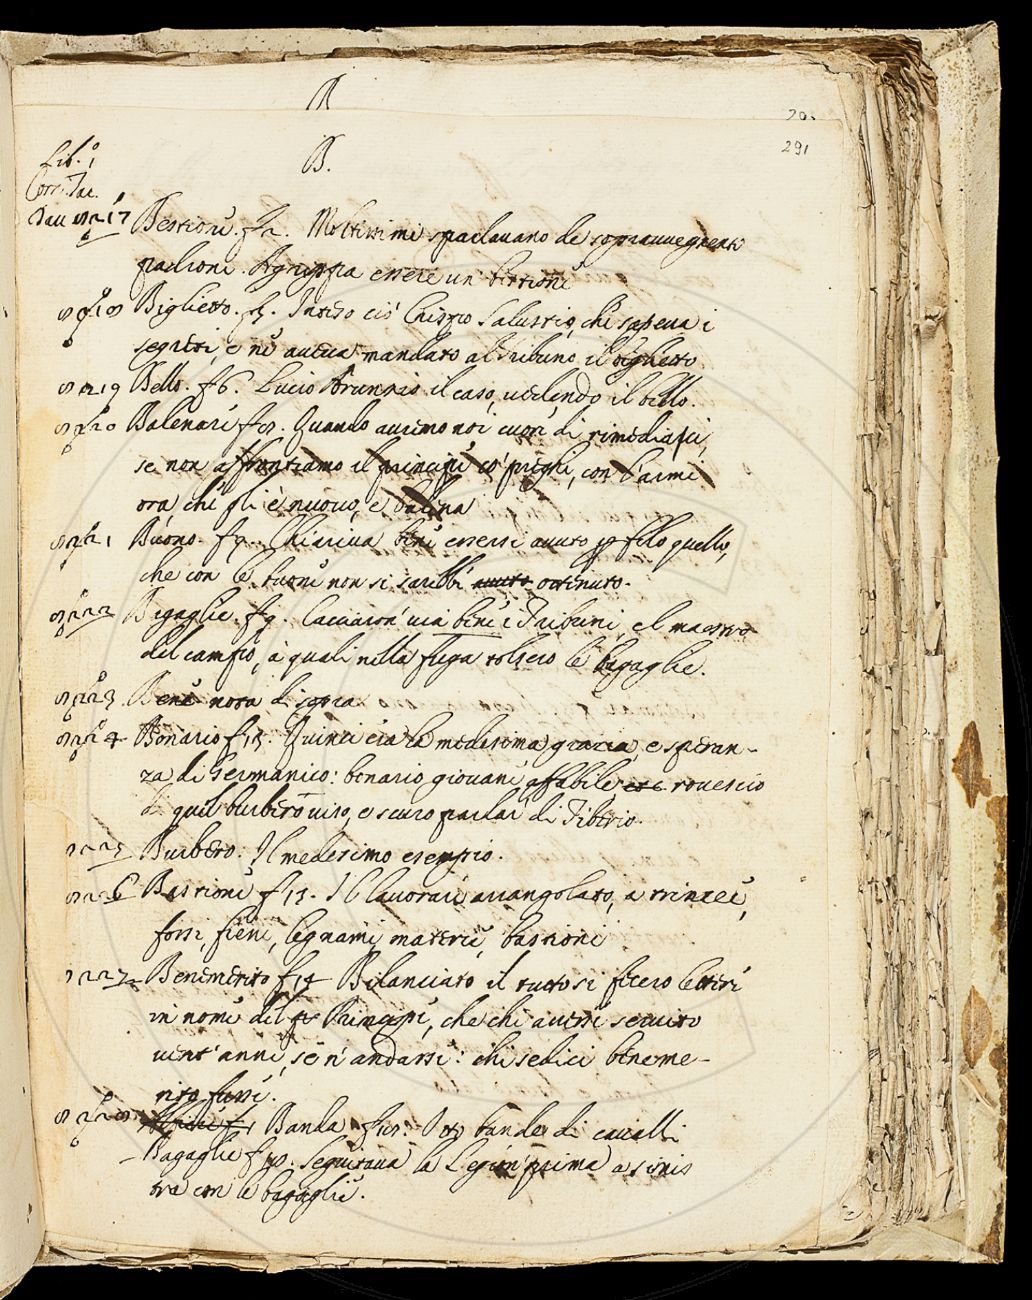 B
20
291
Lib. 1
B.
Corn. Tac.
Dav
Bestione. f. 2. Moltissimi sparlavano de soprauuegnenti
padroni. Agrippa essere un bestione
Biglietto. f. 5. Inteso ciò Crispo Salustio, che sapeva i
segreti, e ne aueua mandato al Tribuno il biglietto
Bello. f. 6. Lucio Arunzio il caso, uedendo il bello.
Balenare f. Quando auremo noi cuore di rimediarci,
se non affrontiamo il principe co' prieghi, con l'armi
ora, che gli è nuouo, e balena
Buono. f. Chiariua bene essersi auuto per filo quello,
che con le buone non si sarebbe auuto ottenuto.
Bagaglie. f. 9. Cacciaron uia bene i Tribuni, el maestro
del campo, a quali nella fuga tolsero le bagaglie.
Bene nota di sopra
Bonario f. 13. Quinci era la medesima grazia, e speran-
za di Germanico: bonario giouane affabile rouescio
di quel burbero uiso, e scuro parlar di Tiberio.
Burbero. Il medesimo esempio.
Bastione f. 13. Il lauorare auangolato, a trincee,
fossi, fieni, legnami, materie, bastioni
Benemerito f. 14 Bilanciato il tutto si fecero lettere
in nome del Principe, che chi auessi seruito
uent'anni, se n'andassi: chi sedici beneme-
rito fussi.
Banda f. bande di caualli
Bagaglie f. Seguitaua la Legion prima a sinis
tra con le bagaglie.